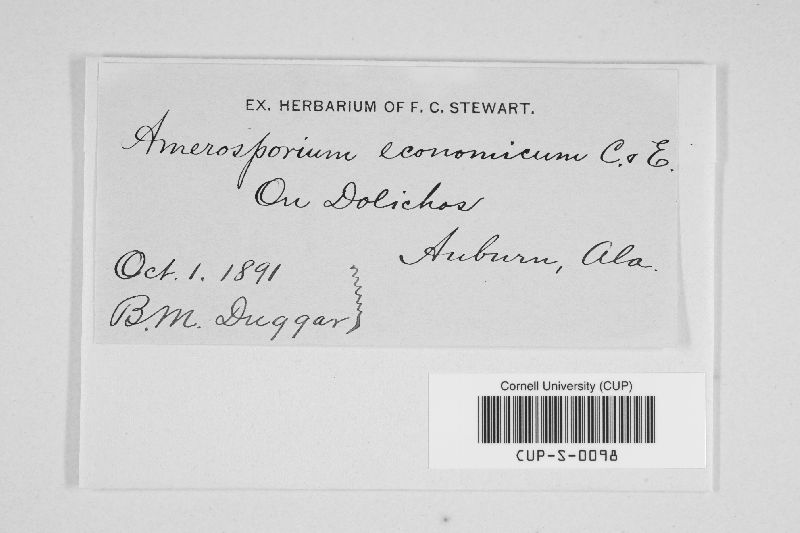 EX. HERBARIUM OF F. C. STEWART.
Amerosporium economicum C. & E.
On Dolichos
Auburn, Ala.
Oct. 1. 1891
B. M. Duggar
Cornell University (CUP)
CUP-S-0098